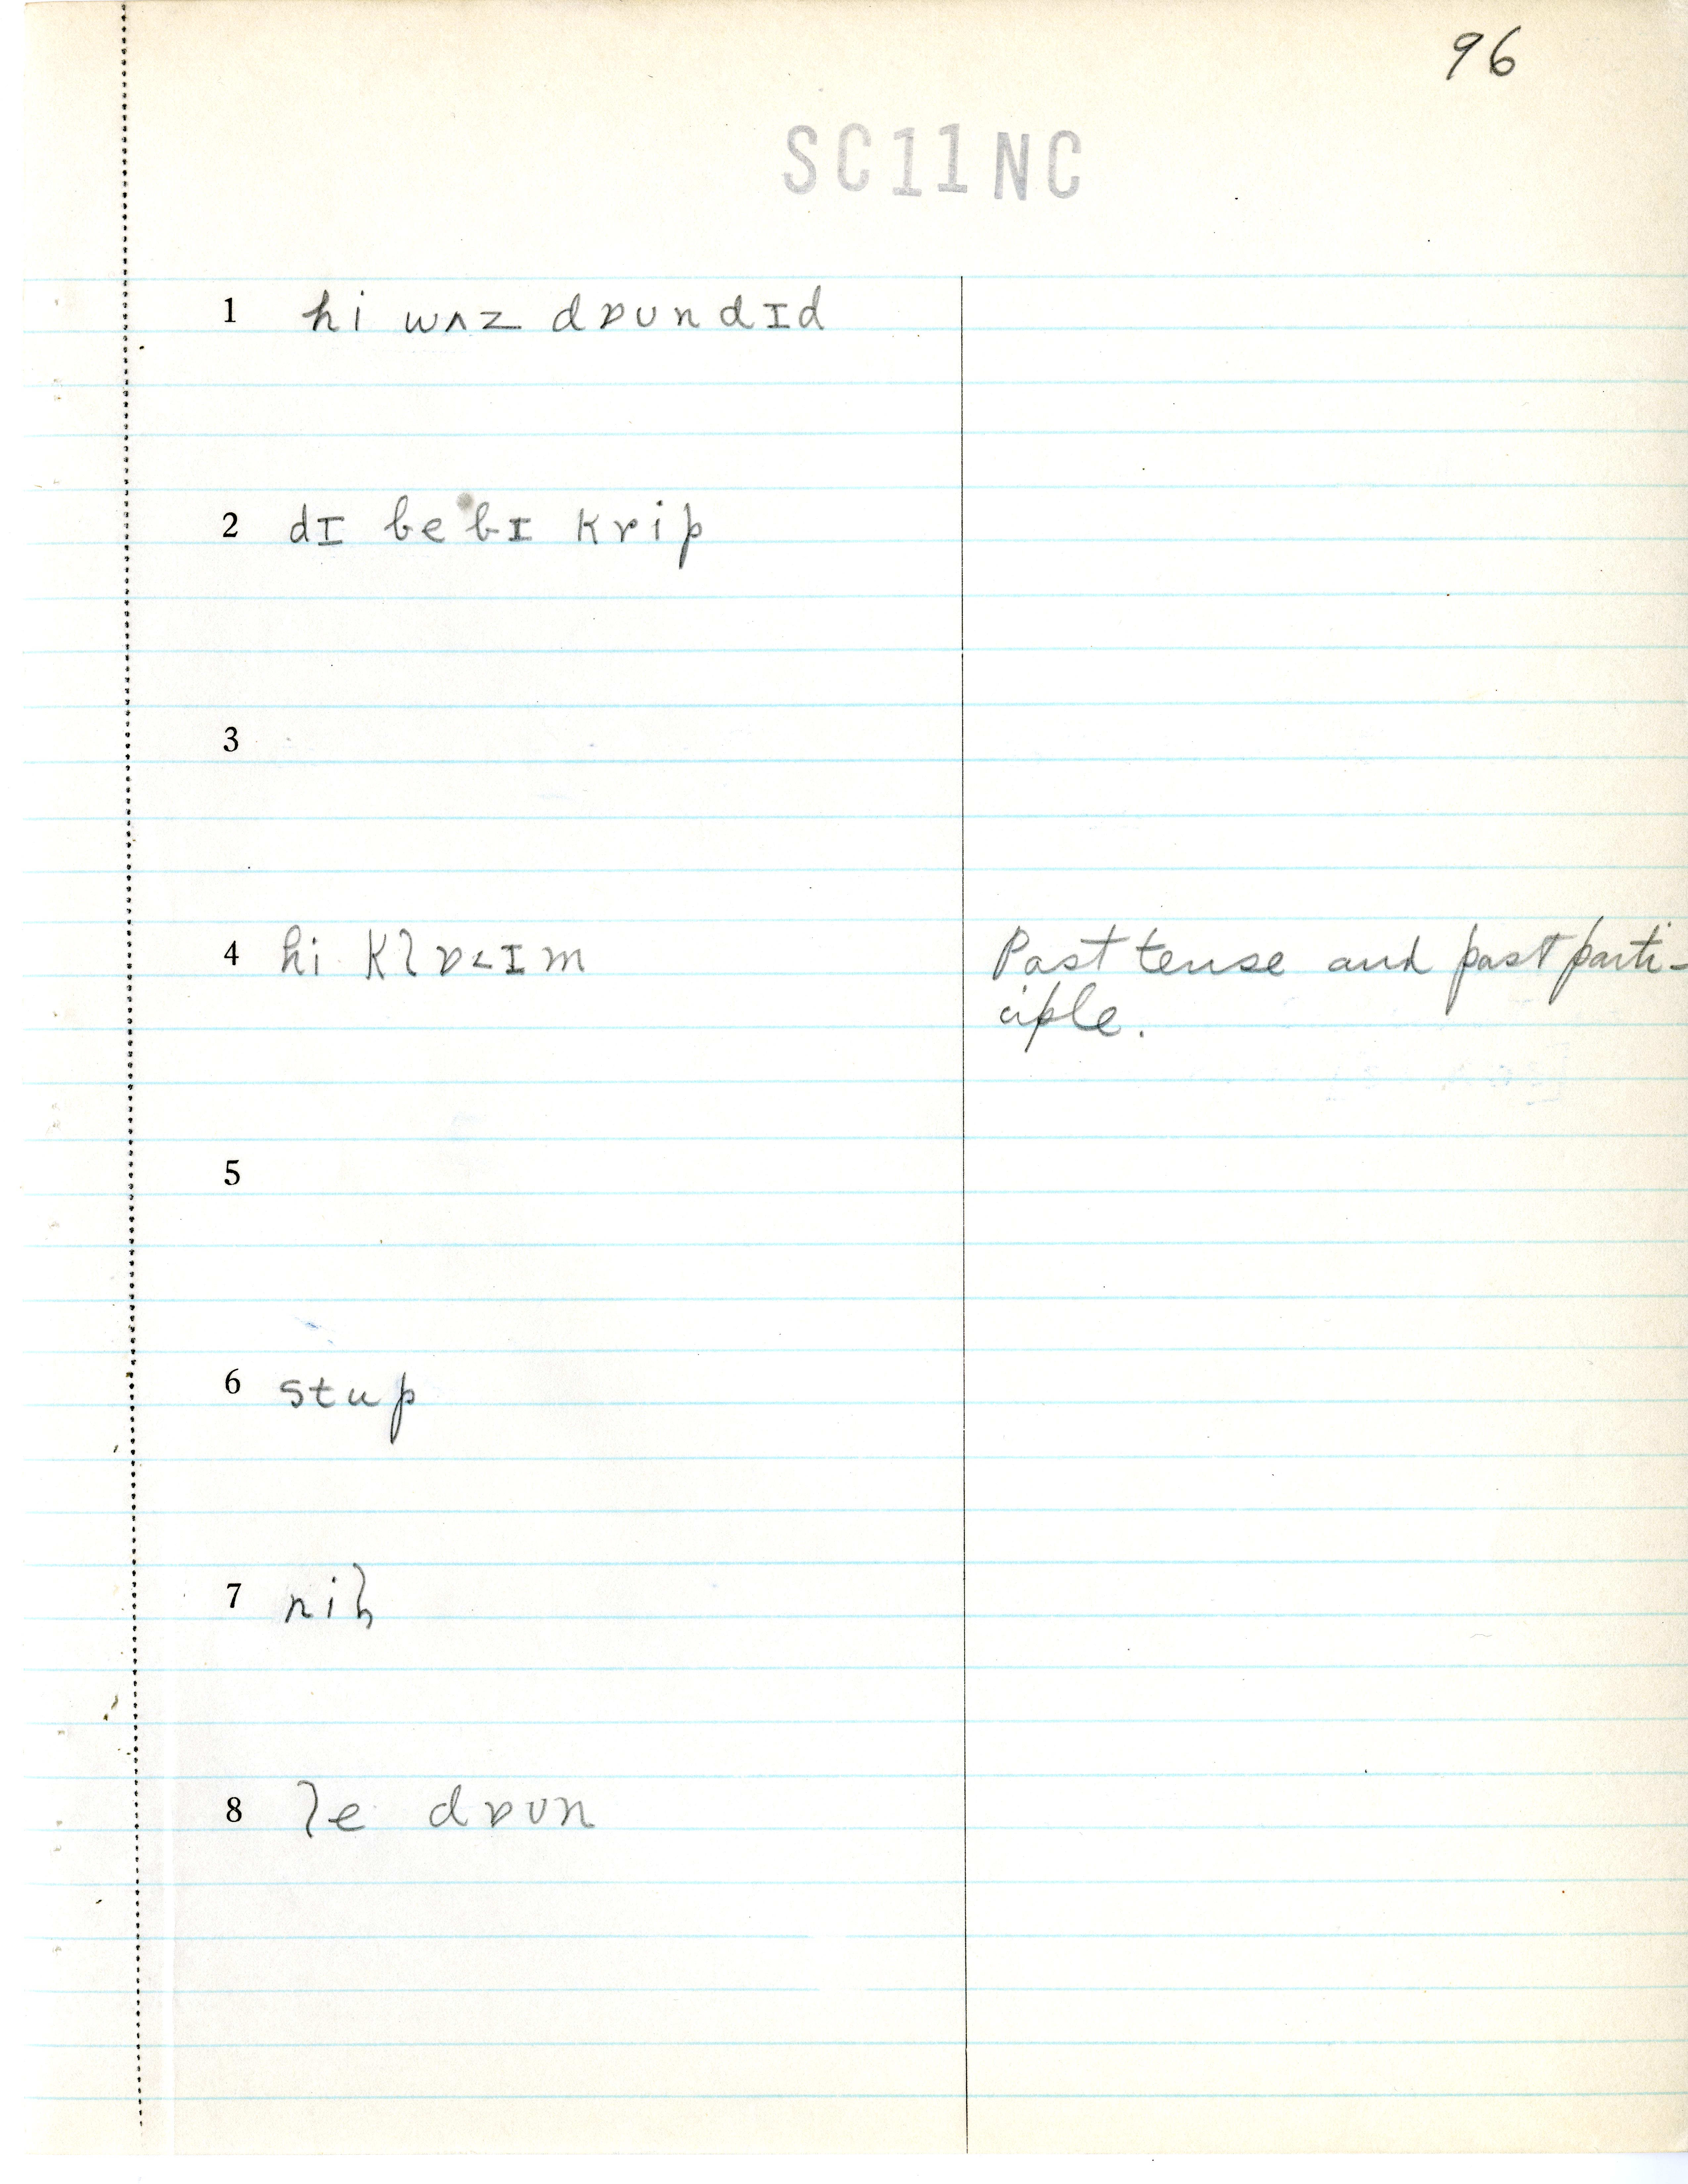 96
SC11NC
1 hi wʌz dɒʊndɪd
2 dɪ bebɪ krip
3
4 hi klɒ˂ɪm Past tense and past parti-
ciple.
5
6 stup
7 niɫ
8 le dɒʊn